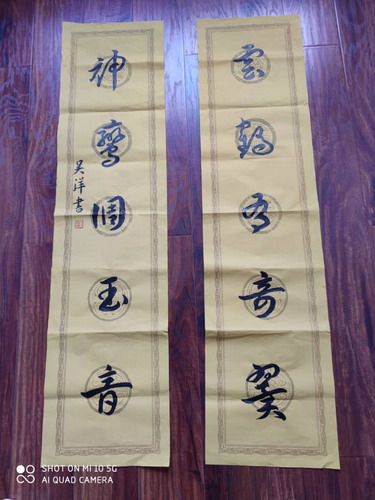 雲鶴有奇翼
神鸞調玉音
吴洋書
SHOT ON MI 10 5G
AI QUAD CAMERA